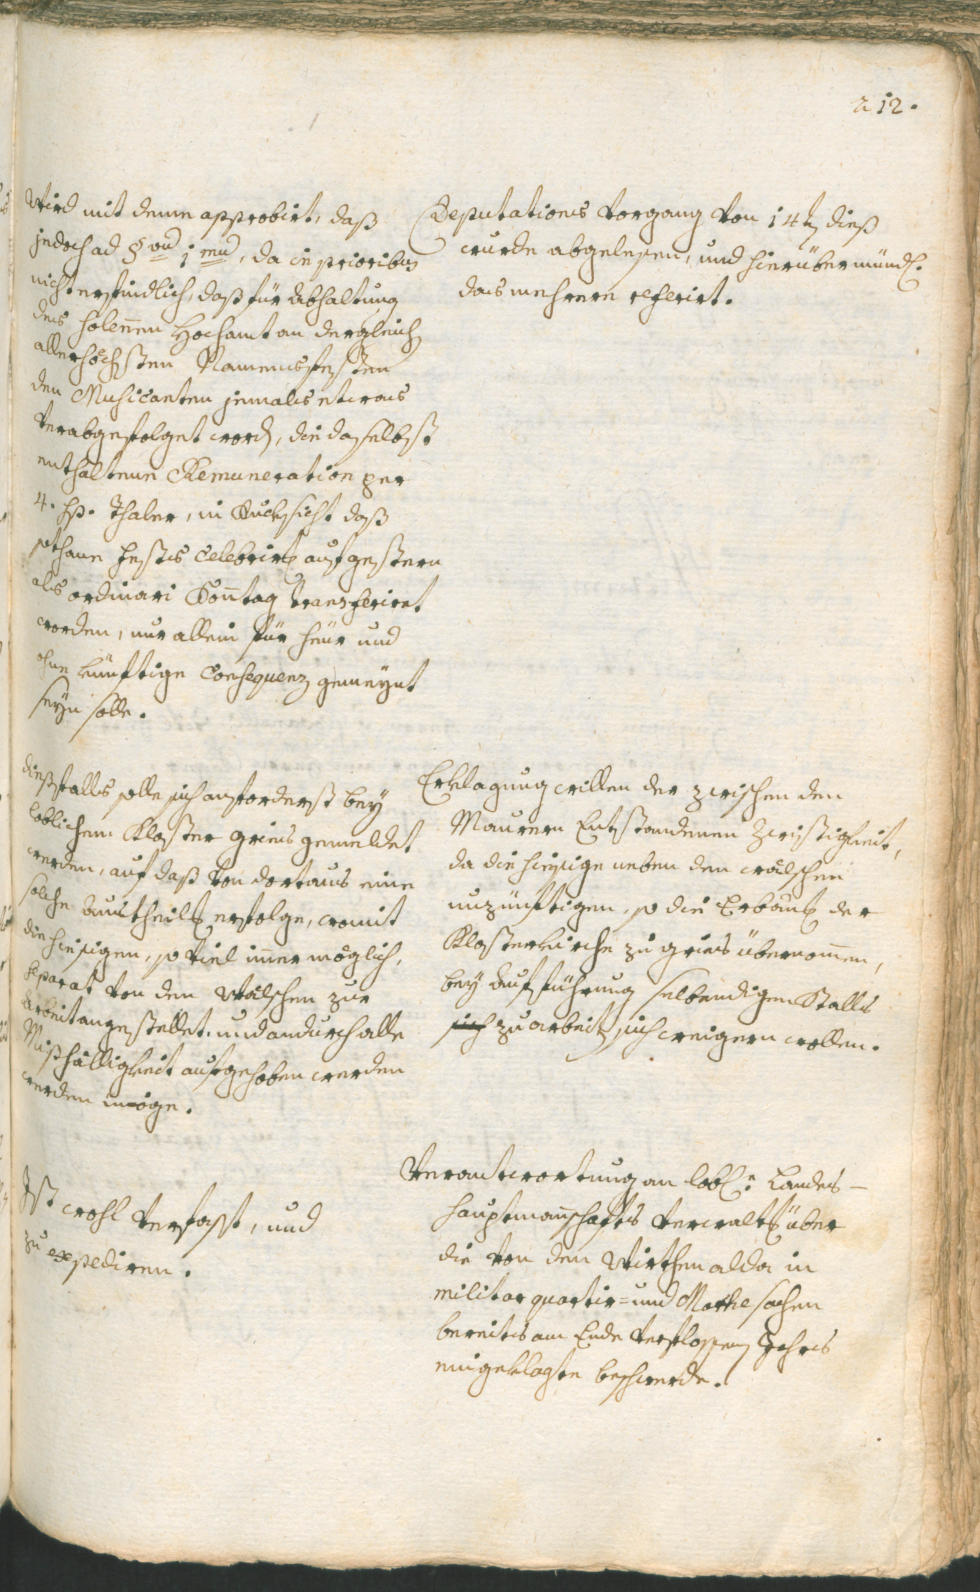 212.
Wird mit deme approbirt, daß
jedoch ad §vũ 1mũ, da in prioribus
nicht erfindlich, daß für Abhaltung
des solennen Hochamt an dergleich
allerhöchsten Namensfesten
den Musicanten jemals etwas
verabgefolget word, die daselbst
enthaltene Remuneration per
4. sp. Thaler, in Rucksicht daß
sothane Festes Celebrirg auf gestern
als ordinari Son̄tag transferiret
worden, nur allein für heür und
ohne künftige Consequenz gemeynt
seyn solle.
Deputations Vorgang von 14t dieß
wurde abgelesen, und hierüber mündl.
das mehrere referirt.
dießfalls solle sich anforderst bey
loblichem Kloster Gries gemeldet
werden, auf daß von dortaus eine
solche Austheilg erfolge, womit
die hiesigen, so viel im̄er möglich,
separat von den Wälschen zur
Arbeit angestellet, und andurch alle
Mißhälligkeit aufgehoben werden
werden möge.
Erklagung willen der zwischen den
Maurern Entstandenen Zwistigkeit,
da die hiesige neben den wälschen
unzünftigen, so die Erbauüg der
Klosterkirche zu Gries übernom̄en,
bey Aufführung selbendigen Stalls
sich zu arbeit sich weigern wollen.
Ist wohl verfasst, und
zu expediren.
Verantwortung an lobl: Landes-
hauptman̄schafts Verwaltg über
die von den Wirthen alda in
militar quartir= und Marche sachen
bereits am Ende verflossen Jahrs
eingeklagte beschwerde.